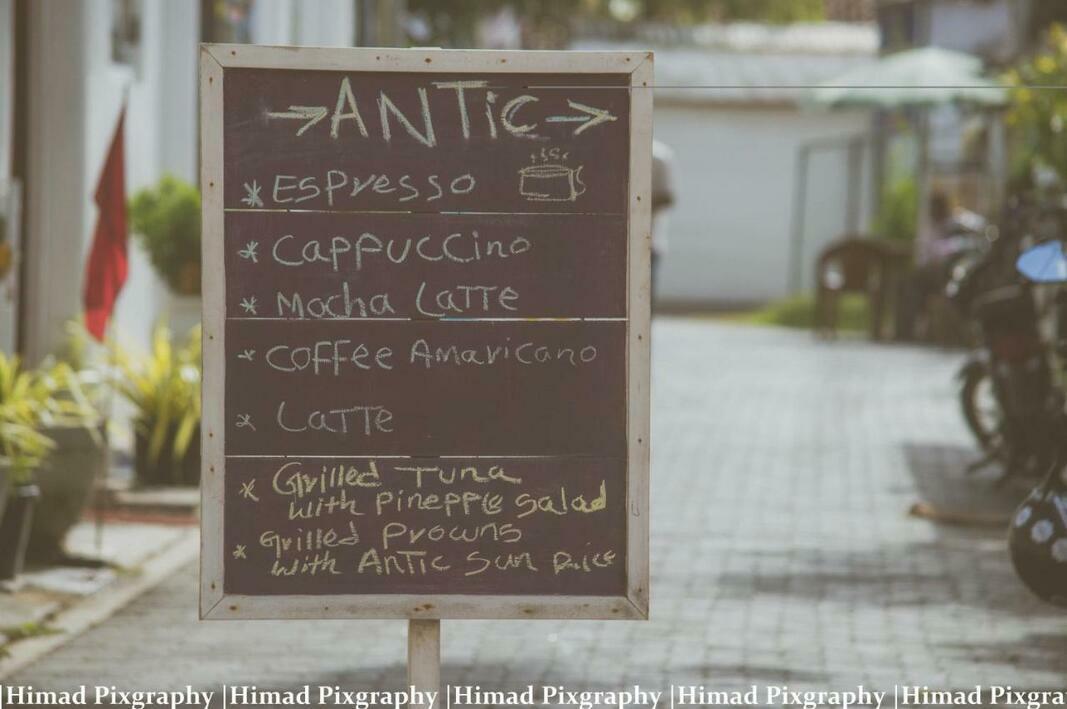 →ANTiC→
* Espresso
* Cappuccino
* Mocha Latte
* Coffee Amaricano
* Latte
* Grilled Tuna
with Pinepple Salad
* Grilled Prowns
with Antic Sun
|Himad Pixgraphy |Himad Pixgraphy |Himad Pixgraphy |Himad Pixgraphy |Himad Pixgra